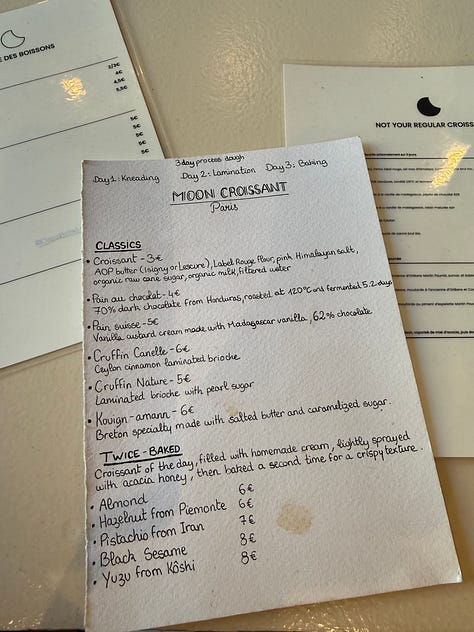 E DES BOISSONS
4€
5€
5€
5€
5€
NOT YOUR REGULAR CROISS
3 day process dough
Day 1: Kneading Day 2: Lamination Day 3: Baking
MOON CROISSANT
Paris
CLASSICS
• Croissant - 3€
AOP butter (Isigny or Lescure), Label Rouge flour, pink Himalayan salt,
organic raw cane sugar, organic milk, filtered water
• Pain au chocolat - 4€
70% dark chocolate from Honduras, roasted at 120°C and fermented 5.2 days
• Pain suisse - 5€
Vanilla custard cream made with Madagascar vanilla, 62% chocolate
• Cruffin Canelle - 6€
Ceylon cinnamon laminated brioche
• Cruffin Nature - 5€
Laminated brioche with pearl sugar
• Kouign-amann - 6€
Breton specialty made with salted butter and caramelized sugar.
TWICE-BAKED
Croissant of the day, filled with homemade cream, lightly sprayed
with acacia honey, then baked a second time for a crispy texture.
• Almond 6€
• Hazelnut from Piemonte 6€
• Pistachio from Iran 7€
• Black Sesame 8€
• Yuzu from Kôshi 8€